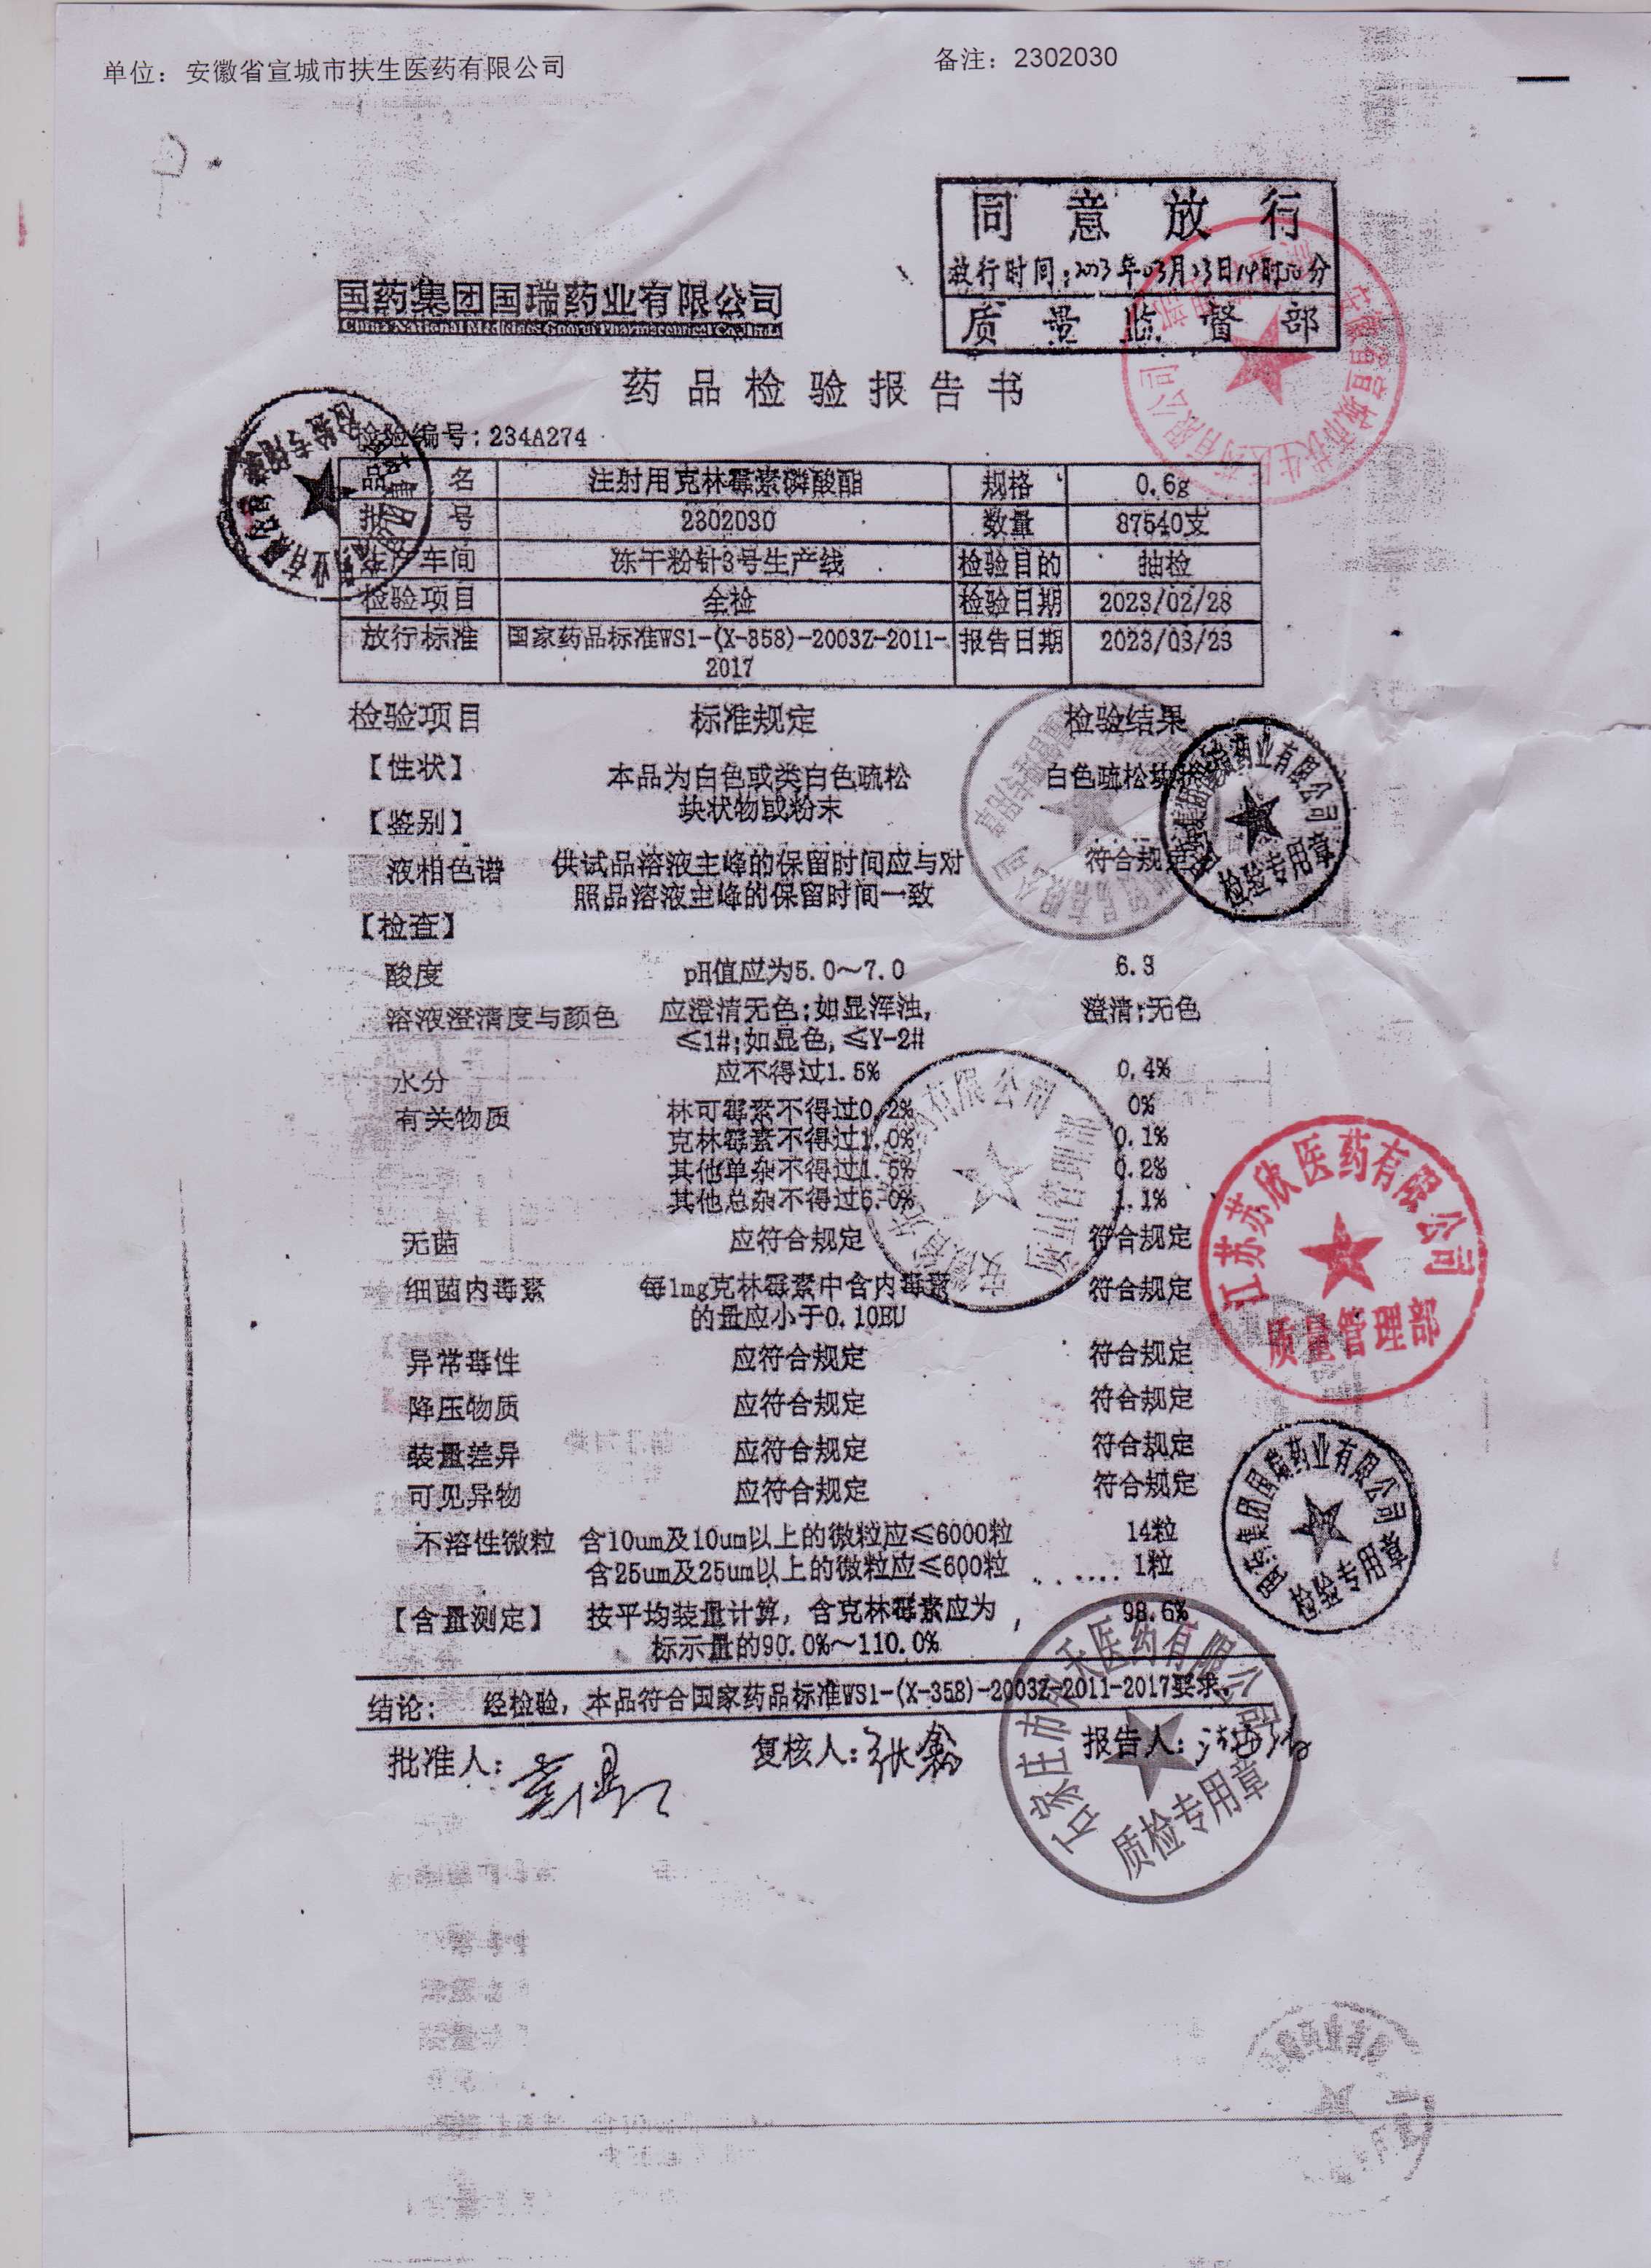 单位：安徽省宣城市扶生医药有限公司
备注：2302030
同意放行
放行时间：2023年03月23日14时50分
质量监督部
国药集团国瑞药业有限公司
China National Medicines Guorui Pharmaceutical Co., Ltd.
药品检验报告书
检验编号：234A274
品名 注射用克林霉素磷酸酯 规格 0.6g
批号 2302030 数量 87540支
生产车间 冻干粉针3号生产线 检验目的 抽检
检验项目 全检 检验日期 2023/02/28
放行标准 国家药品标准WS1-(X-358)-2003Z-2011- 报告日期 2023/03/23
2017
检验项目 标准规定 检验结果
【性状】 本品为白色或类白色疏松 白色疏松块状
块状物或粉末
【鉴别】
液相色谱 供试品溶液主峰的保留时间应与对 符合规定
照品溶液主峰的保留时间一致
【检查】
酸度 pH值应为5.0～7.0 6.3
溶液澄清度与颜色 应澄清无色;如显浑浊, 澄清;无色
≤1#;如显色,≤Y-2#
水分 应不得过1.5% 0.4%
有关物质 林可霉素不得过0.2% 0%
克林霉素不得过1.0% 0.1%
其他单杂不得过1.5% 0.2%
其他总杂不得过6.0% 1.1%
无菌 应符合规定 符合规定
细菌内毒素 每1mg克林霉素中含内毒素 符合规定
的量应小于0.10EU
异常毒性 应符合规定 符合规定
降压物质 应符合规定 符合规定
装量差异 应符合规定 符合规定
可见异物 应符合规定 符合规定
不溶性微粒 含10um及10um以上的微粒应≤6000粒 14粒
含25um及25um以上的微粒应≤600粒 ...... 1粒
【含量测定】 按平均装量计算，含克林霉素应为 98.6%
标示量的90.0%～110.0%
结论： 经检验，本品符合国家药品标准WS1-(X-358)-2003Z-2011-2017要求。
批准人：
复核人：张鑫
报告人：
安徽省宣城市扶生医药有限公司
国药集团国瑞药业有限公司
检验专用章
江苏苏欣医药有限公司
质量管理部
国药集团国瑞药业有限公司
检验专用章
质检专用章